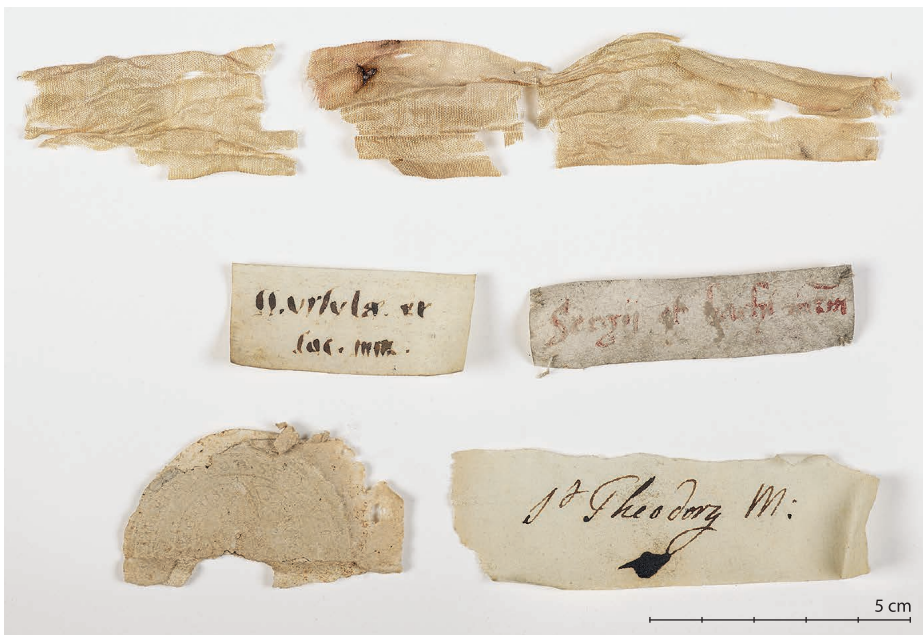 SS. Vrsulæ. et
soc. mm.
Sergii et bachi mrm
St Theodorj M:
5 cm